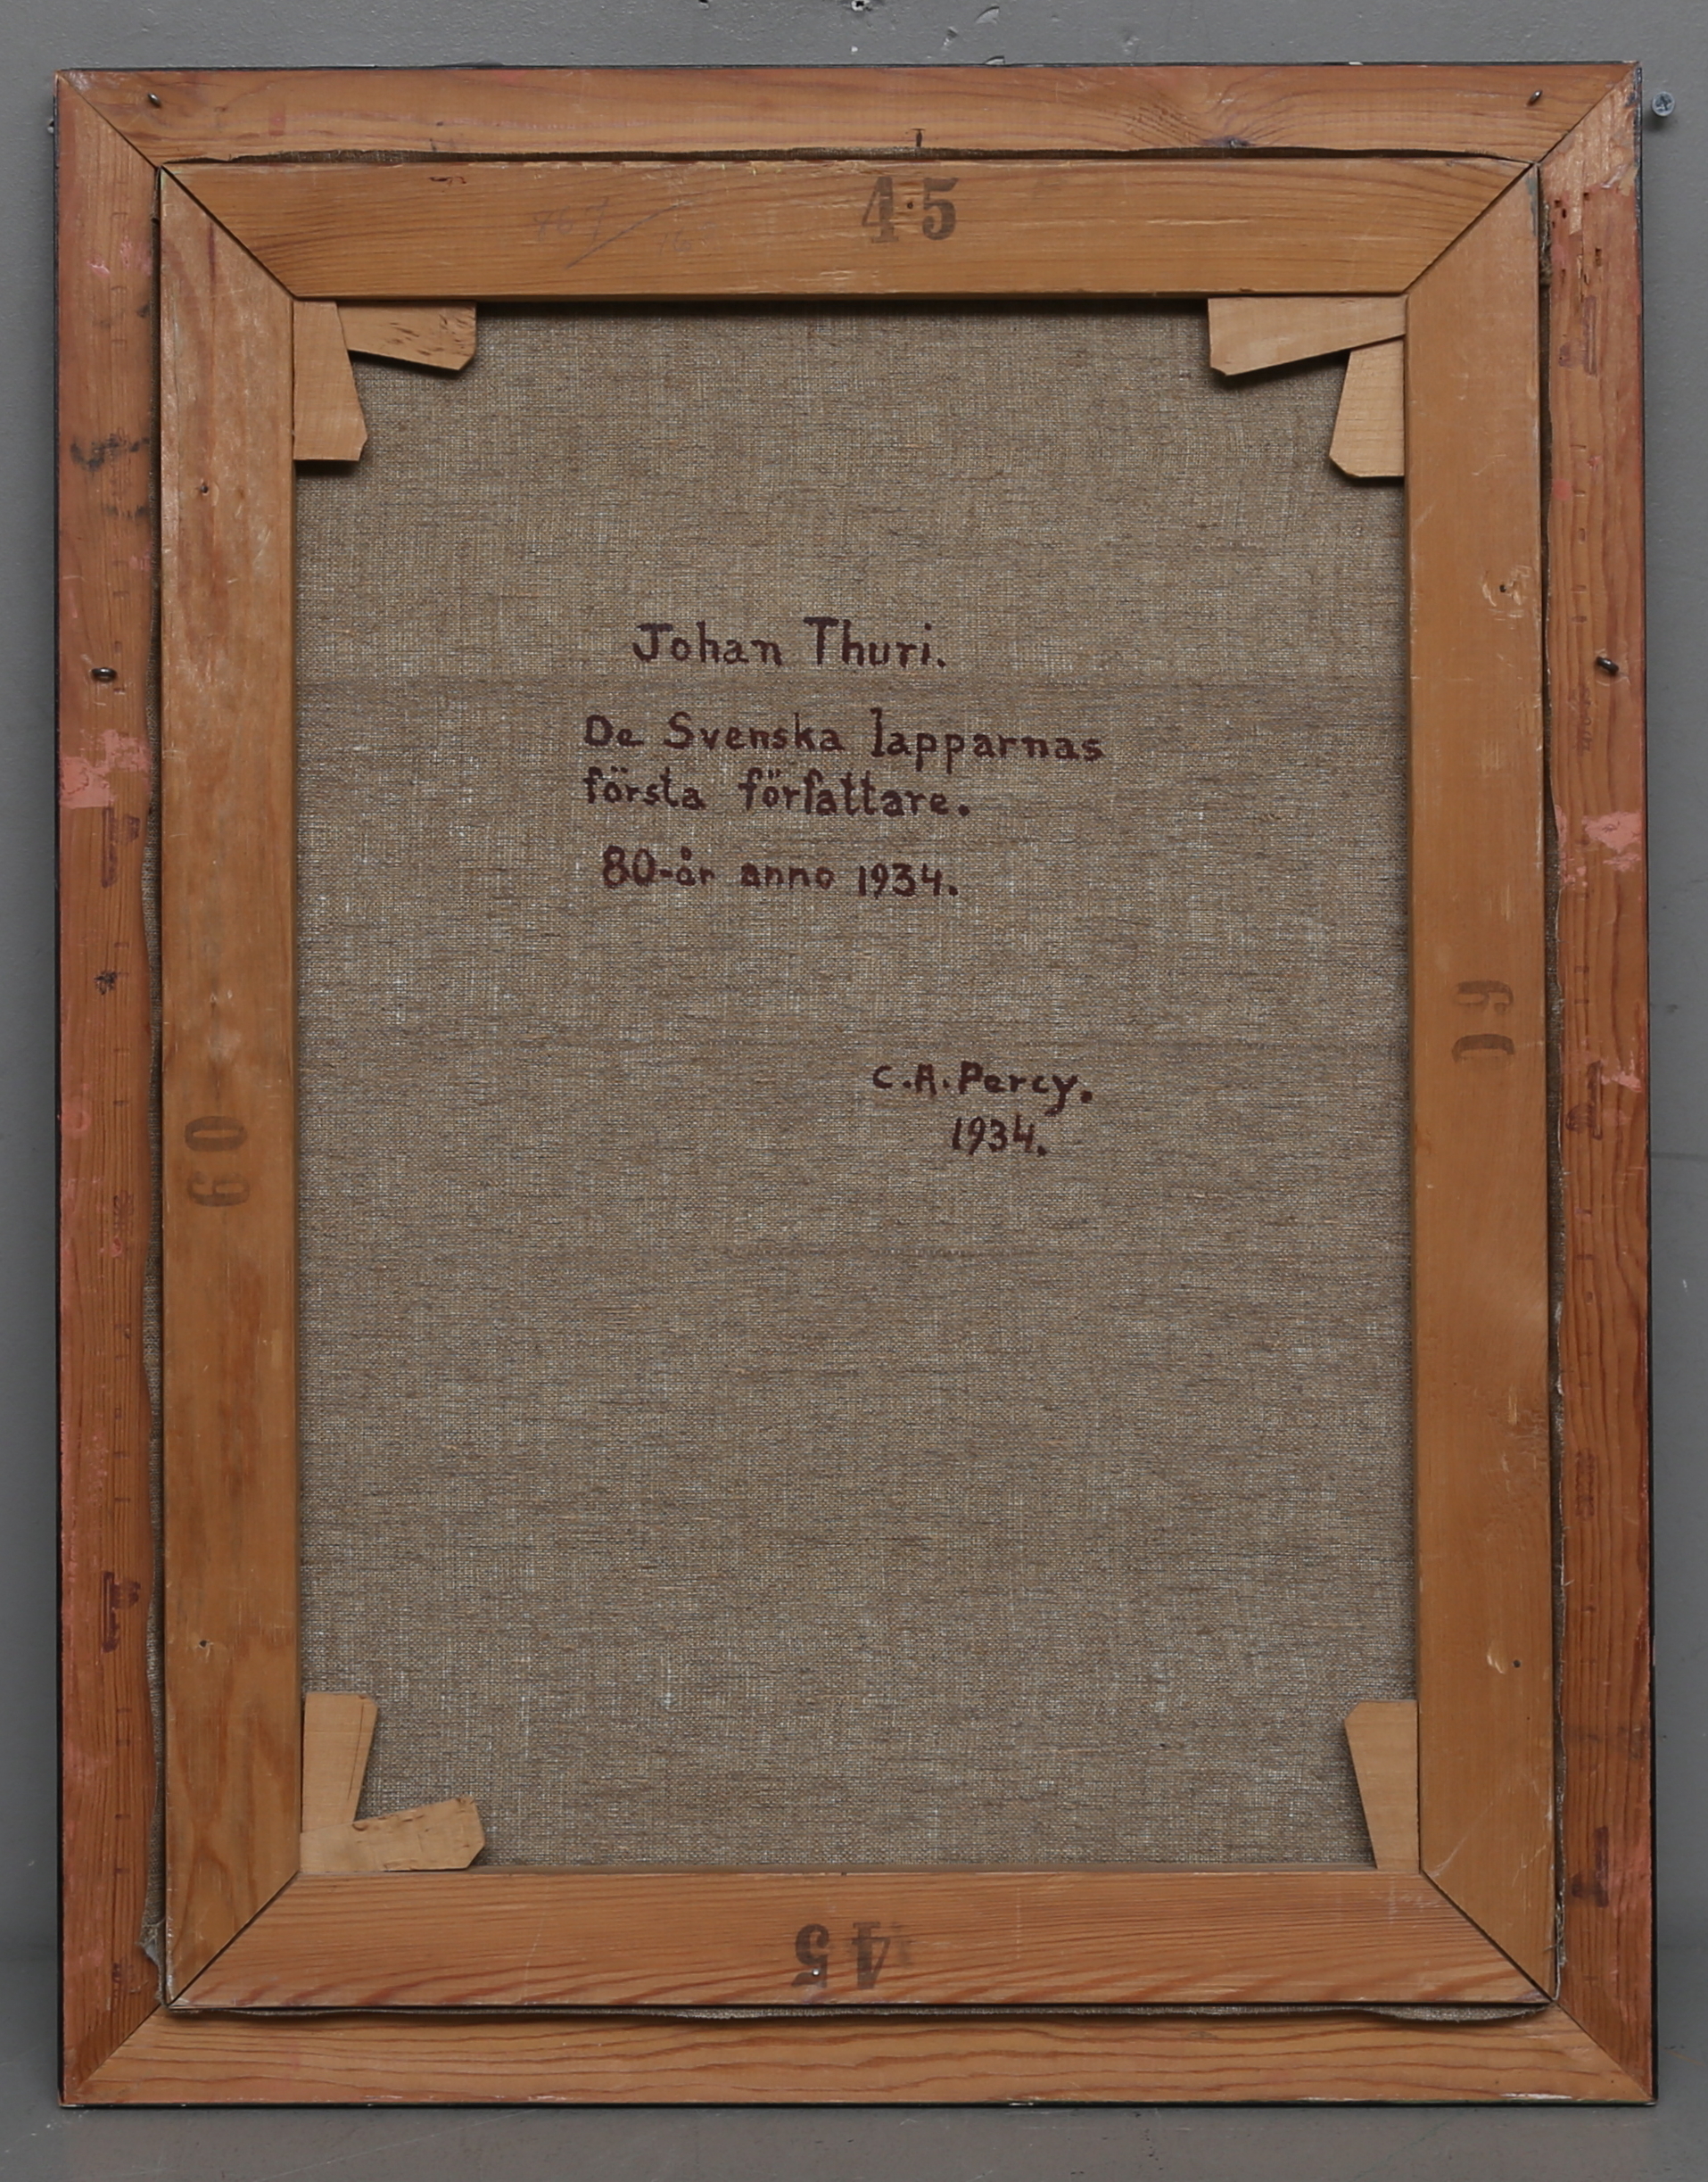 45
Johan Thuri.
De Svenska lapparnas
första författare.
80-år anno 1934.
60
60
C.A. Percy.
1934.
45